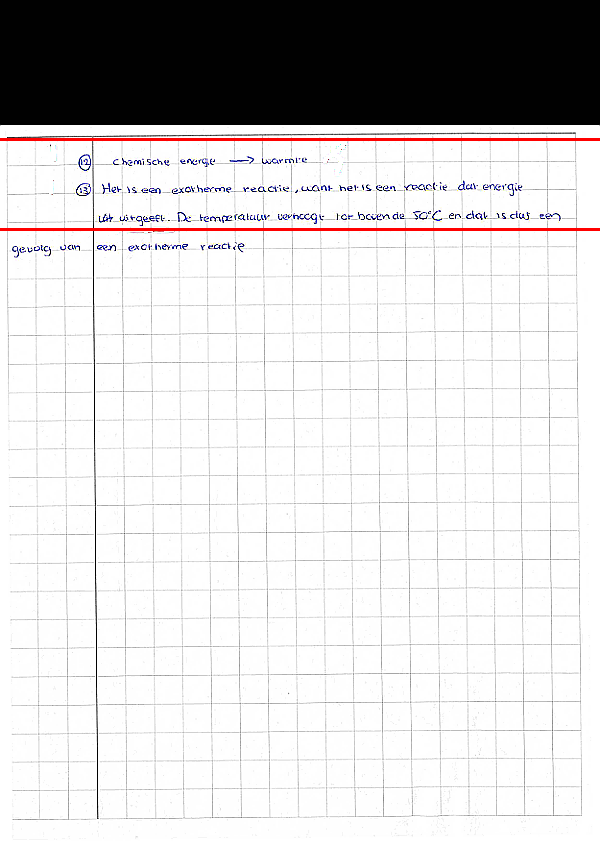 12 Chemische energie → warmte
13 Het is een exotherme reactie, want het is een reactie dat energie
uitgeeft. De temperatuur verhoogt tot boven de 50°C en dat is dus een
gevolg van een exotherme reactie